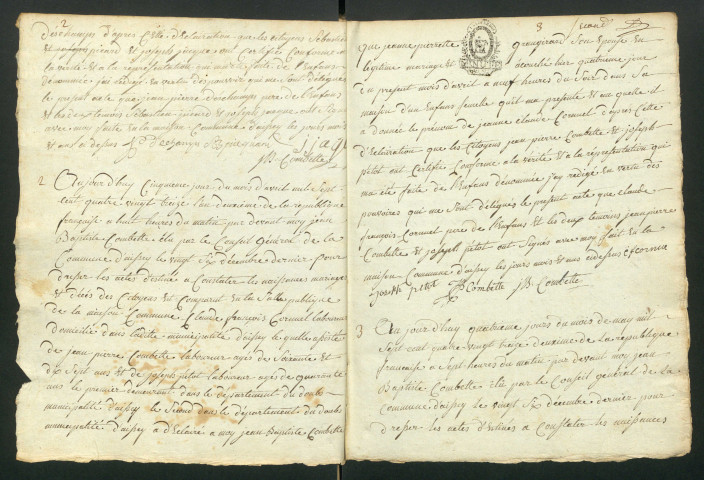 2
deschamps d'apres Cette declaration que les citoyens Sebastien
et joseph pierard et joseph jacque ont Certifié Conforme a
la verité et a la representation qui ma été faite de l'enfans
denommée jai redigé en vertu des pouvoirs qui me sont delegues
le present acte que jean pierre deschamps pere de l'enfans
et les deux temoins Sebastien pierard et joseph jacque ont Signés
avec moy fait en la maison Commune d'aissey les jours mois
et ans ci dessus
JB Combette
2 Au jour d'huy Cinquieme jour du mois d'avril mil sept
cent quatre vingt treize l'an deuxieme de la republique
française a huit heures du matin par devant moy jean
Baptiste Combette elu par le Conseil général de la
Commune d'aissey le vingt Six décembre dernier pour
dresser les actes destiné a Constater les naissances mariages
et décès des Citoyens est Comparut en la Salle publique
de la maison Commune Claude françois Cornuel laboureur
domicilié dans ladite municipalité d'aissey le quel a assisté
de jean pierre Combette laboureur agés de Soixante et
dix Sept ans et de joseph petot laboureur agés de quarante
ans le premier demeurant dans le departement du doubs
municipalité d'aissey le second dans le département du doubs
municipalité d'aissey a déclaré a moy jean Baptiste Combette
3
que jeanne pierrette graugirard Son épouse en
legitime mariage est accouché hier quatrieme jour
du present mois d'avril a neuf heures du Soir dans Sa
maison d'un Enfans femelle quil ma presenté et au quelle il
a donné le prénom de jeanne claude Cornuel d'après Cette
déclaration que les Citoyens jean pierre Combette et joseph
petot ont Certifié Conforme a la verité et a la répresentation qui
ma été faite de l'Enfans dénommée j'ay redigé en vertu des
pouvoirs qui me Sont délegués le present acte que claude
françois Cornuel pere de l'Enfans et les deux temoins jean pierre
Combette et joseph petot ont Signés avec moy fait en la
maison Commune d'aissey les jours mois et ans cidessus c f cornue
joseph petot JP Combette JB Combette
3 Au jour d'huy quatrieme jours du mois de may mil
Sept cent quatre vingt treize deuxieme de la republique
francaise a Sept heures du matin par devant moy jean
Baptiste Combette élu par le Conseil général de la
Commune d'aissey le vingt Six décembre dernier pour
dresser les actes destinés a Constater les naissances